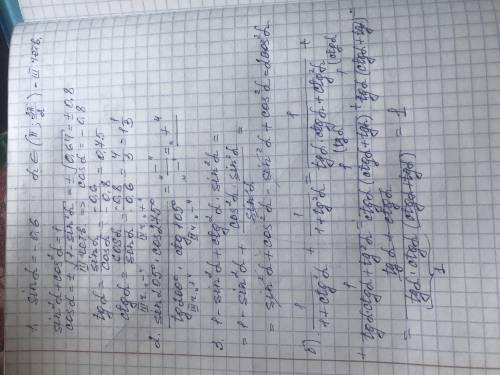 1. sinα = -0,6 α ∈ (π; 3π/2) - III четв.
sin²α + cos²α = 1
cosα = ± √(1 - sin²α) = ± √0,64 = ± 0,8
III четв. => cosα = -0,8
tgα = sinα/cosα = -0,6/-0,8 = 0,75
ctgα = cosα/sinα = -0,8/-0,6 = 4/3 = 1 1/3
1 - sin²α + ctg²α · sin²α =
= 1 - sin²α + cos²α · sin²α / sin²α =
= sin²α + cos²α - sin²α + cos²α = 2cos²α
б) 1/(1 + ctg²α) + 1/(1 + tg²α) = 1/(tgα · ctgα + ctg²α) +
+ 1/(tgα · ctgα + tg²α) = 1/(ctgα (ctgα + tgα)) + 1/(tgα (ctgα + tgα)) =
= (tgα + ctgα)/(tgα · ctgα (ctgα + tgα)) = 1
1